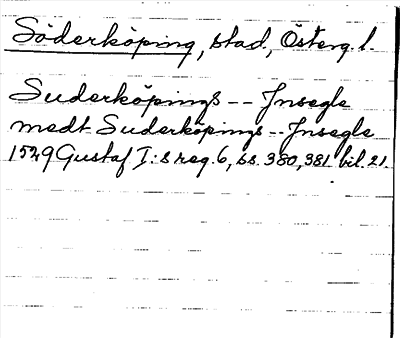 Söderköping, stad., Österg. l.
Suderköpings -- Jnsegle
medt Suderköpings -- Jnsegle
1529 Gustaf I:s reg. 6, ss. 380, 381 bil. 21.